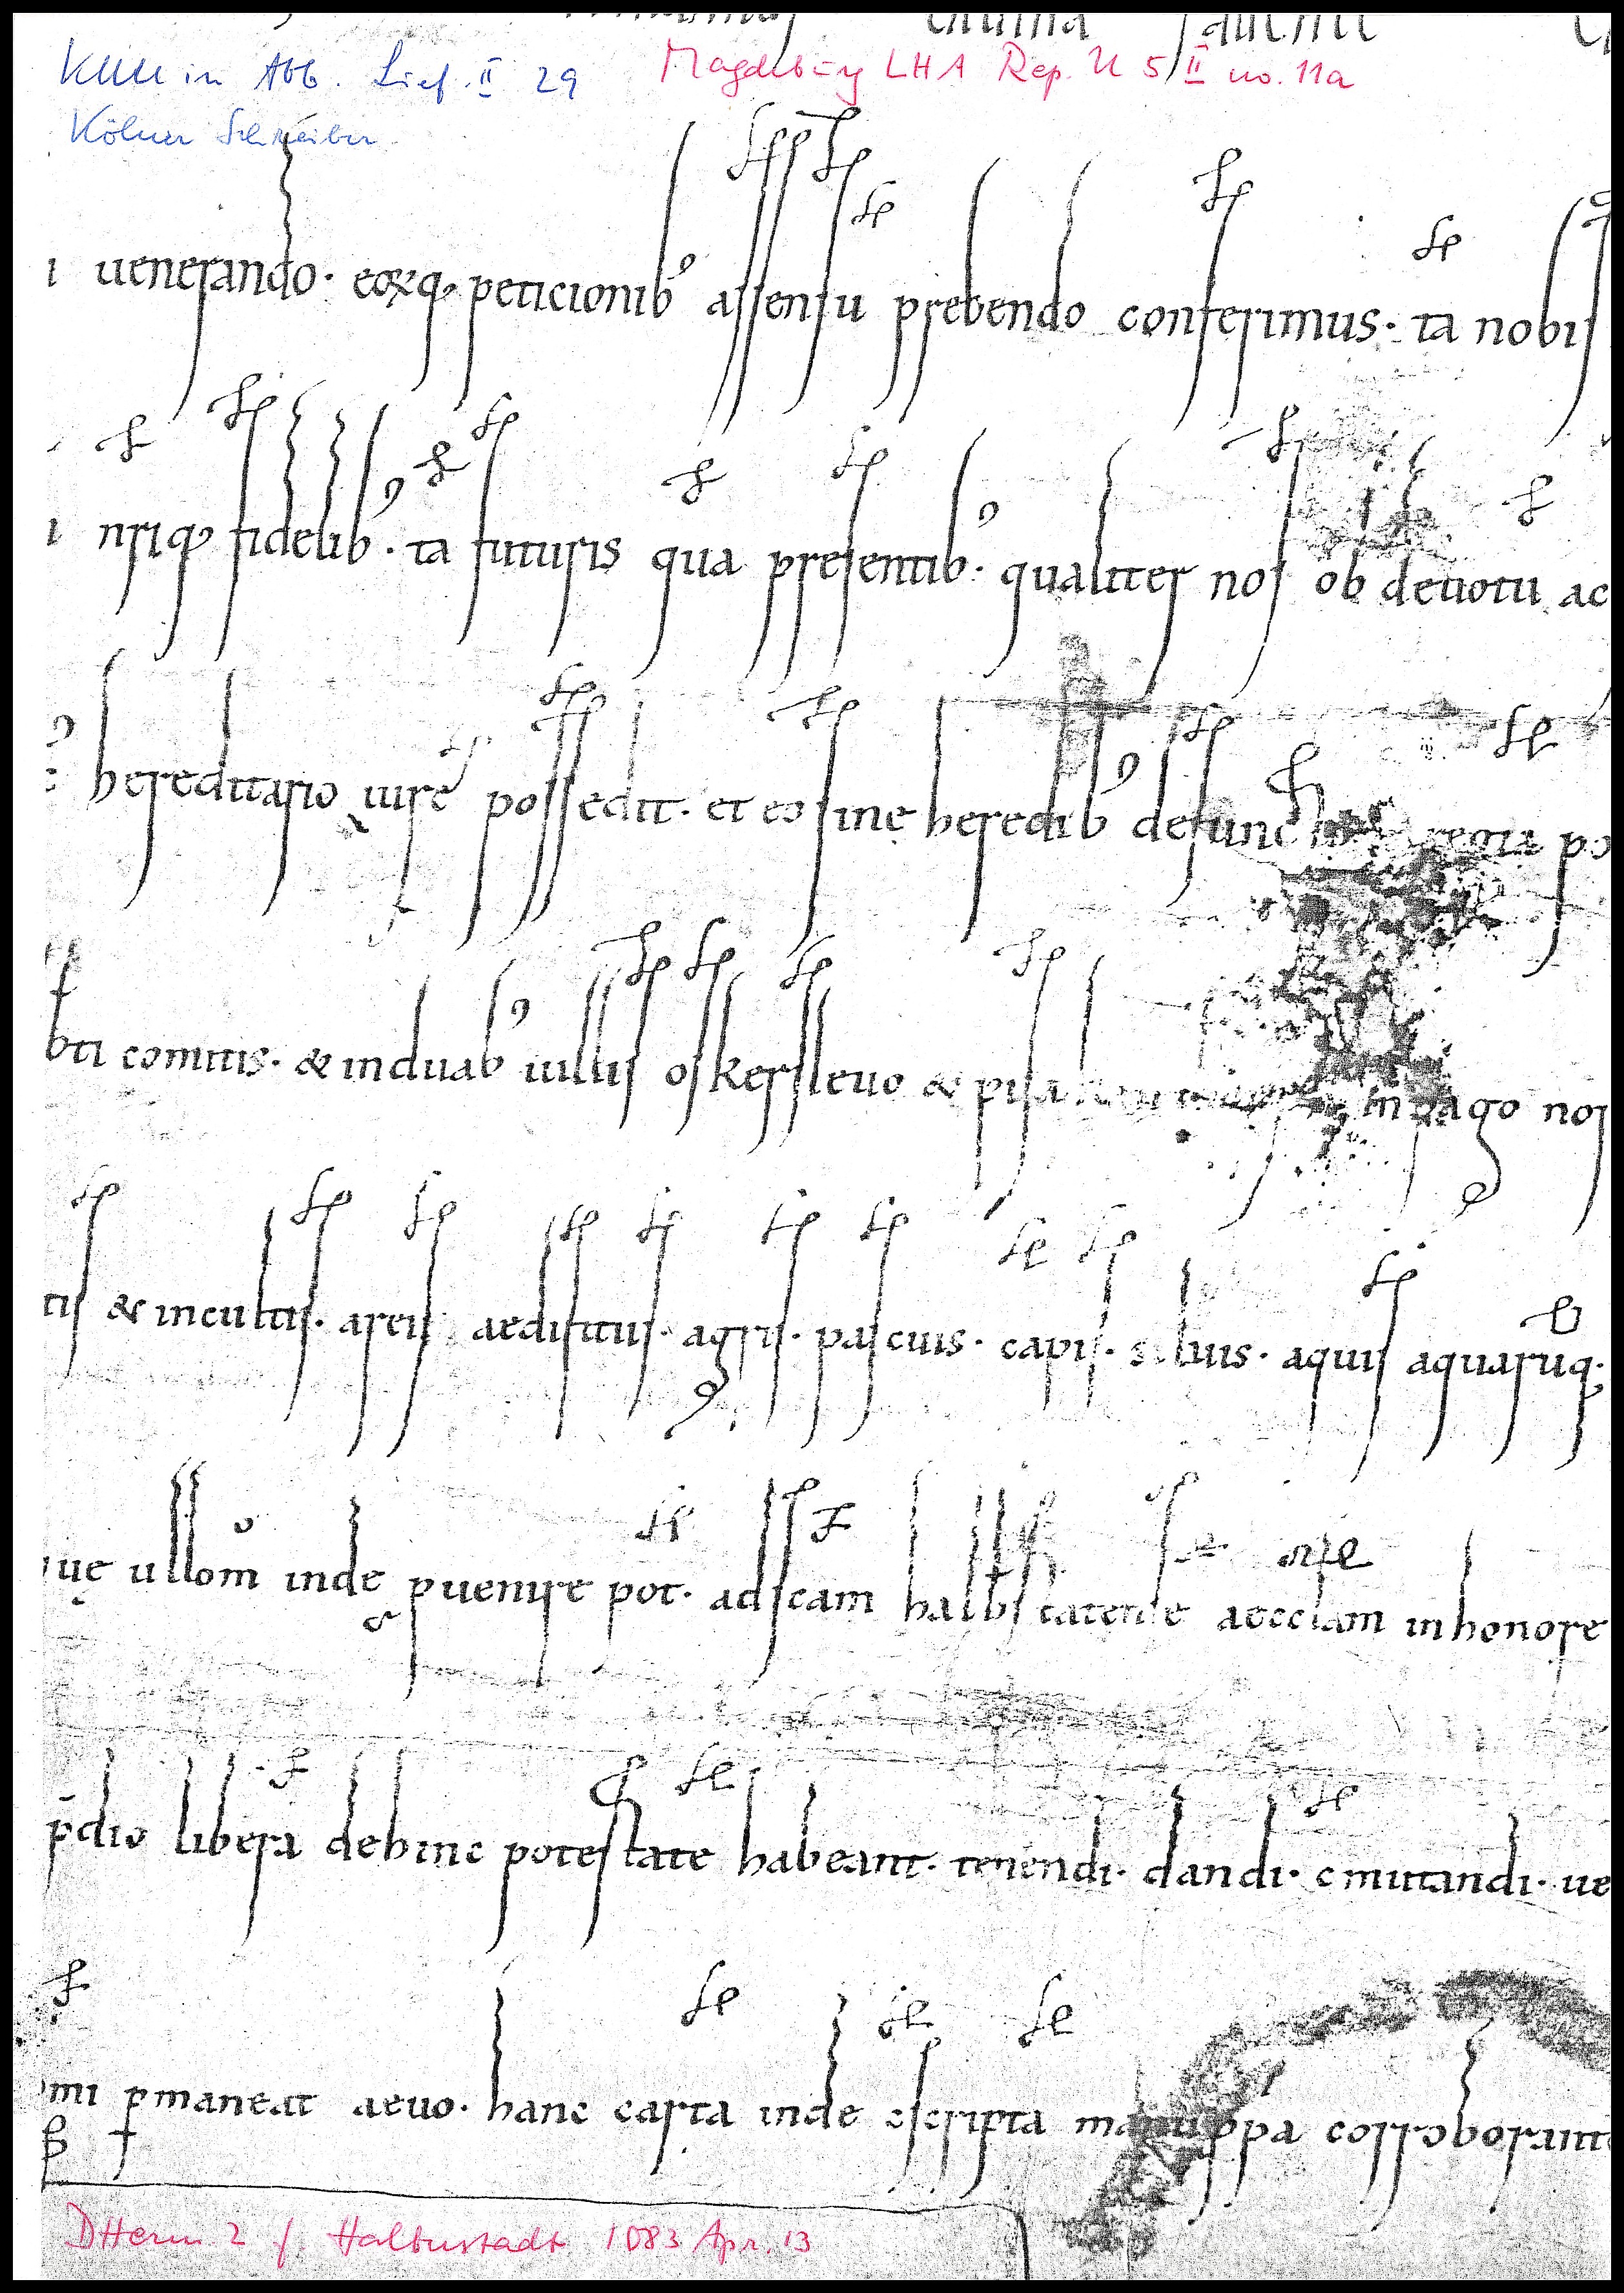 KUU in Abb. Lief. II 29 Magdeburg LHA Rep. U 5, II no. 11a
Kölner Schreiber
i uenerando. eorꝝq; peticionib' assensu prebendo conferimus. ta nobis
i nriq; fidelib'. ta futuris qua presentib'. qualiter nos ob deuotu ac
hereditario iure possedit. et eo sine heredib' defunc regia po
bti comitis. & induab' uillis oskersleuo & in pago nor
tis & incultis. areis aedificiis. agris. pascuis. capis. siluis. aquis aquaruq;
ue ullom inde puenire pot. ad scam halbstatense aecclam in honore
pdio libera dehinc potestate habeant. tenendi. dandi. cmutandi. ue
mi pmaneat aeuo. hanc carta inde cscripta manuppa corroborant
DHerm. 2 f. Halberstadt 1083 Apr. 13